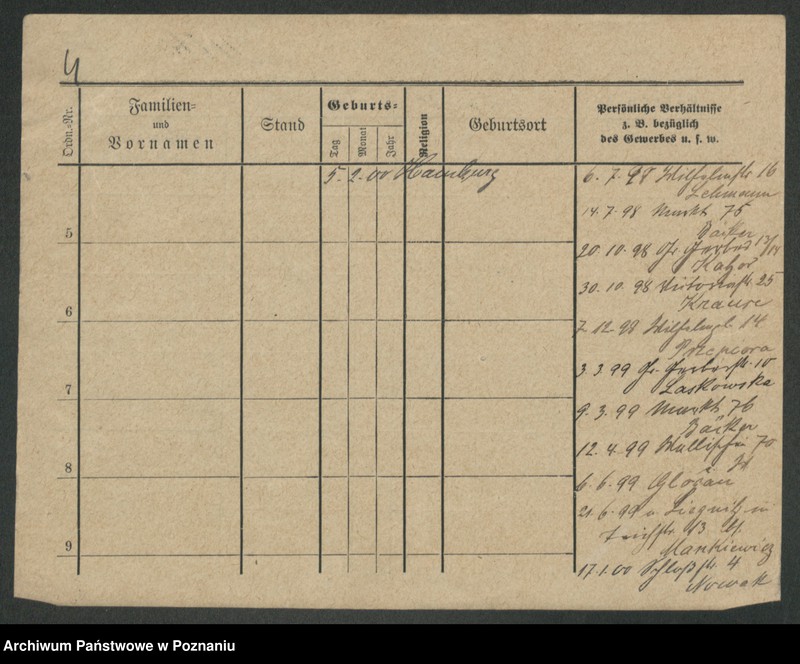 4
Ordn.-Nr.
Familien-
und
Vornamen
Stand
Geburts-
Tag
Monat
Jahr
Religion
Geburtsort
Persönliche Verhältnisse
z. B. bezüglich
des Gewerbes u. s. w.
5. 2. 00 Hamburg
6. 7. 98 Wilhelmstr 16
Lehmann
14. 7. 98 Markt 75
Bäcker
5
20. 10. 98 Gr. Gerber 13/14
30. 10. 98 Victoriastr. 25
Krause
6
7. 12. 98 Wilhelmpl. 14
3. 3. 99 Gr. Gerberstr. 10
Laskowska
7
9. 3. 99 Markt 76
Bäcker
12. 4. 99 Wallischei 70
8
6. 6. 99
21. 6. 99 v. Liegnitz
Teichstr.
Mankiewicz
9
17. 1. 00 Schloßstr 4
Nowak
Archiwum Państwowe w Poznaniu